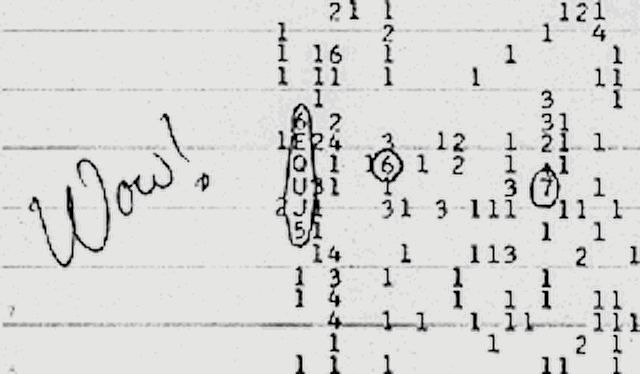 21 1 121
1 2 1 4
1 16 1 1 1
1 11 1 1 11
1 3 1
6 2 31
1 E 24 3 12 1 21 1
Wow! Q 1 6 1 2 1 1
U 31 1 3 7 1
2 J 1 31 3 111 11 1
5 1 1 1
14 1 113 2 1
1 3 1 1 1
1 4 1 1 1 11
4 1 1 1 11 111
1 1 2 1
1 1 1 11 1